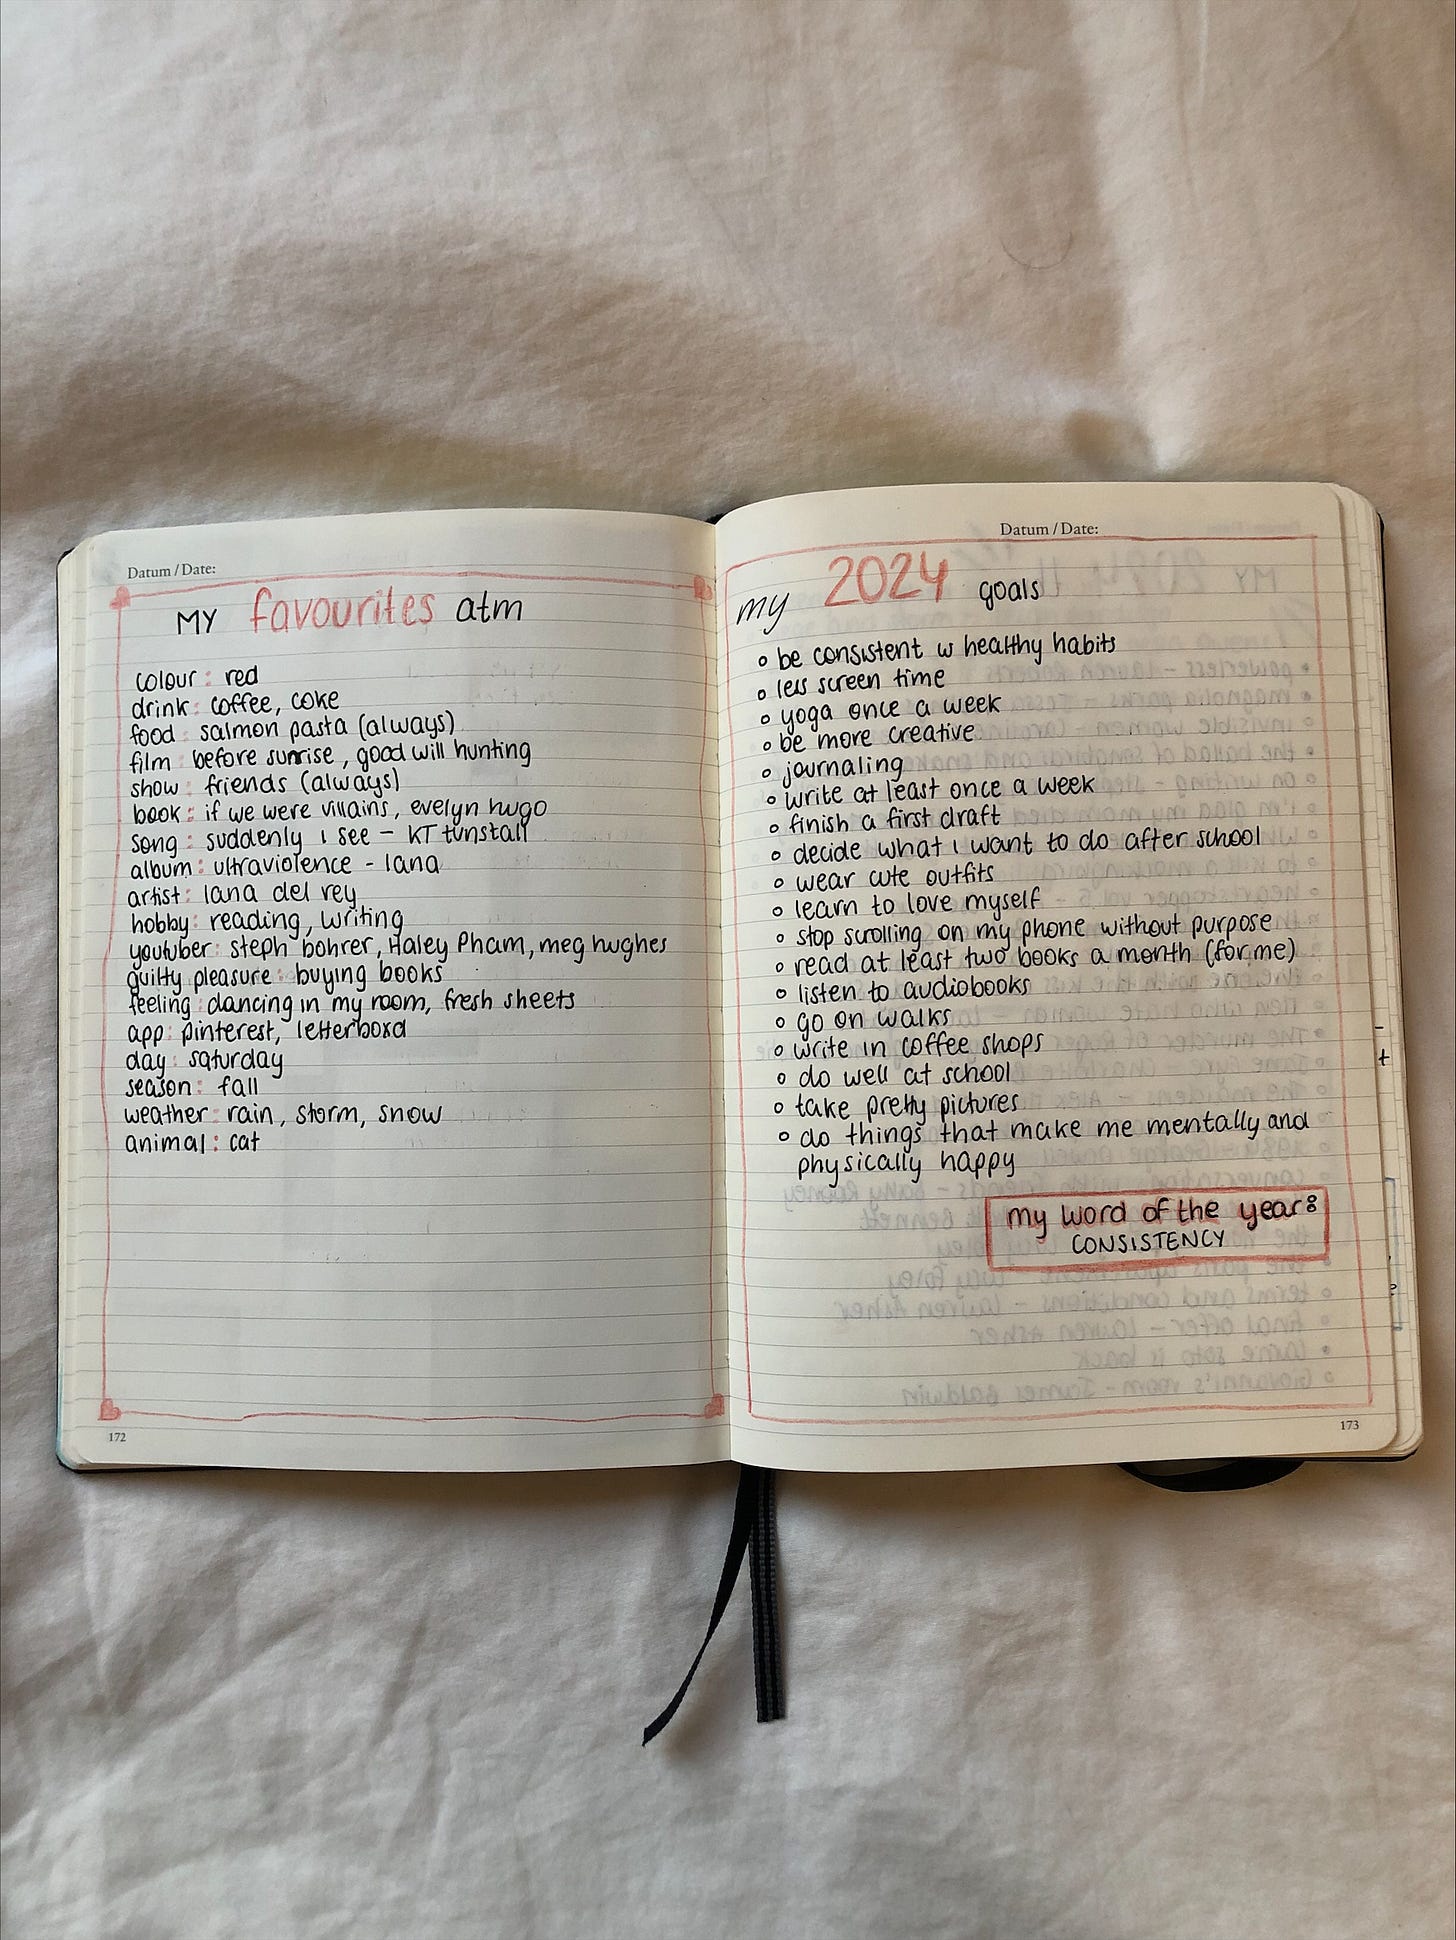 Datum / Date:
MY favourites atm
colour: red
drink: coffee, coke
food: salmon pasta (always)
film: before sunrise, good will hunting
show: friends (always)
book: if we were villains, evelyn hugo
song: suddenly i see - KT tunstall
album: ultraviolence - lana
artist: lana del rey
hobby: reading, writing
youtuber: steph bohrer, Haley Pham, meg hughes
guilty pleasure: buying books
feeling: dancing in my room, fresh sheets
app: pinterest, letterboxd
day: saturday
season: fall
weather: rain, storm, snow
animal: cat
172
Datum / Date:
my 2024 goals
o be consistent w healthy habits
o less screen time
o yoga once a week
o be more creative
o journaling
o write at least once a week
o finish a first draft
o decide what i want to do after school
o wear cute outfits
o learn to love myself
o stop scrolling on my phone without purpose
o read at least two books a month (for me)
o listen to audiobooks
o go on walks
o write in coffee shops
o do well at school
o take pretty pictures
o do things that make me mentally and
physically happy
my word of the year:
CONSISTENCY
173